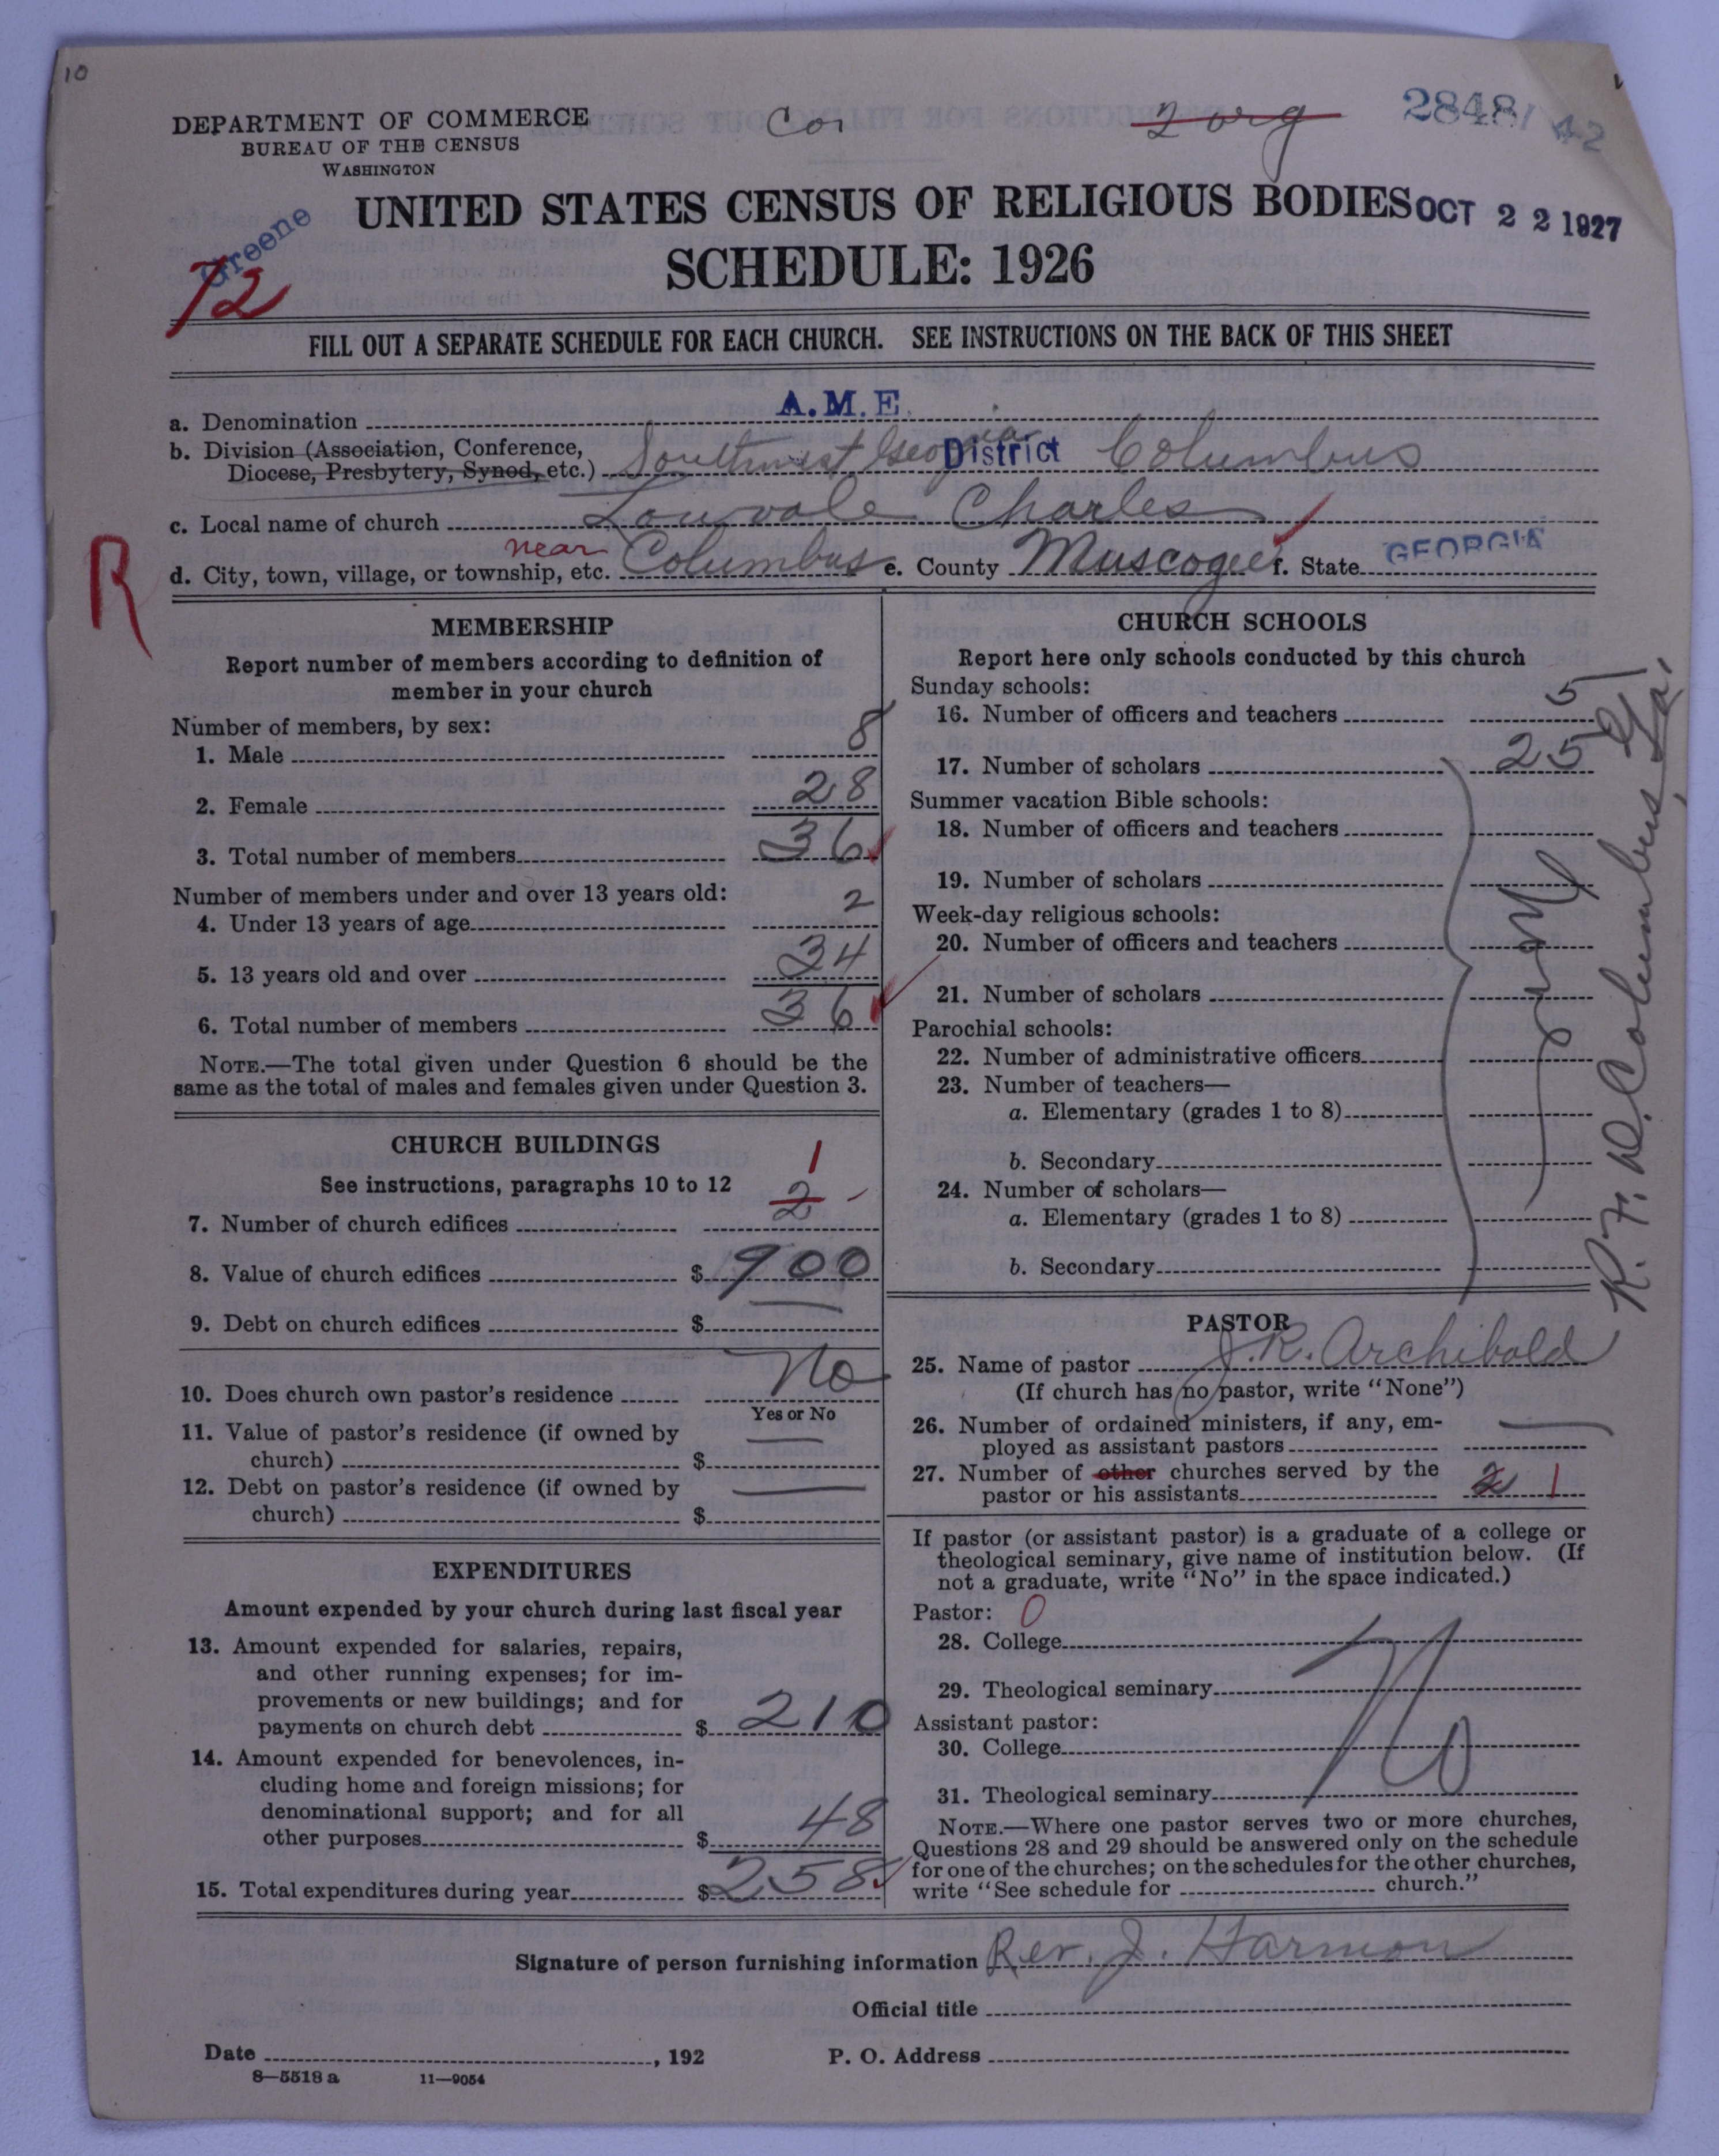 10
DEPARTMENT OF COMMERCE
BUREAU OF THE CENSUS
WASHINGTON
Cor
2 org
28481 42
UNITED STATES CENSUS OF RELIGIOUS BODIES
OCT 22 1927
SCHEDULE: 1926
Greene
72
FILL OUT A SEPARATE SCHEDULE FOR EACH CHURCH. SEE INSTRUCTIONS ON THE BACK OF THIS SHEET
a. Denomination A.M.E.
b. Division (Association, Conference,
Diocese, Presbytery, Synod, etc.) Southwest Georgia District Columbus
c. Local name of church Louvale Charles
d. City, town, village, or township, etc. near Columbus e. County Muscogee f. State GEORGIA
R
MEMBERSHIP
Report number of members according to definition of
member in your church
Number of members, by sex:
1. Male 8
2. Female 28
3. Total number of members 36
Number of members under and over 13 years old:
4. Under 13 years of age 2
5. 13 years old and over 34
6. Total number of members 36
NOTE.—The total given under Question 6 should be the
same as the total of males and females given under Question 3.
CHURCH BUILDINGS
See instructions, paragraphs 10 to 12
7. Number of church edifices 2 1
8. Value of church edifices $ 900
9. Debt on church edifices $
10. Does church own pastor's residence No
Yes or No
11. Value of pastor's residence (if owned by
church) $
12. Debt on pastor's residence (if owned by
church) $
EXPENDITURES
Amount expended by your church during last fiscal year
13. Amount expended for salaries, repairs,
and other running expenses; for im-
provements or new buildings; and for
payments on church debt $ 210
14. Amount expended for benevolences, in-
cluding home and foreign missions; for
denominational support; and for all
other purposes $ 48
15. Total expenditures during year $ 258
CHURCH SCHOOLS
Report here only schools conducted by this church
Sunday schools:
16. Number of officers and teachers 5
17. Number of scholars 25
Summer vacation Bible schools:
18. Number of officers and teachers
19. Number of scholars
Week-day religious schools:
20. Number of officers and teachers
21. Number of scholars
Parochial schools:
22. Number of administrative officers
23. Number of teachers—
a. Elementary (grades 1 to 8)
b. Secondary
24. Number of scholars—
a. Elementary (grades 1 to 8)
b. Secondary
R.F.D. Columbus Ga.
PASTOR
25. Name of pastor J. R. Archibold
(If church has no pastor, write "None")
26. Number of ordained ministers, if any, em-
ployed as assistant pastors
27. Number of other churches served by the
pastor or his assistants 2 1
If pastor (or assistant pastor) is a graduate of a college or
theological seminary, give name of institution below. (If
not a graduate, write "No" in the space indicated.)
Pastor: 0
28. College
29. Theological seminary
No
Assistant pastor:
30. College
31. Theological seminary
NOTE.—Where one pastor serves two or more churches,
Questions 28 and 29 should be answered only on the schedule
for one of the churches; on the schedules for the other churches,
write "See schedule for church."
Signature of person furnishing information Rev. J. Harmon
Official title
Date , 192
P. O. Address
8—5518 a 11—9054